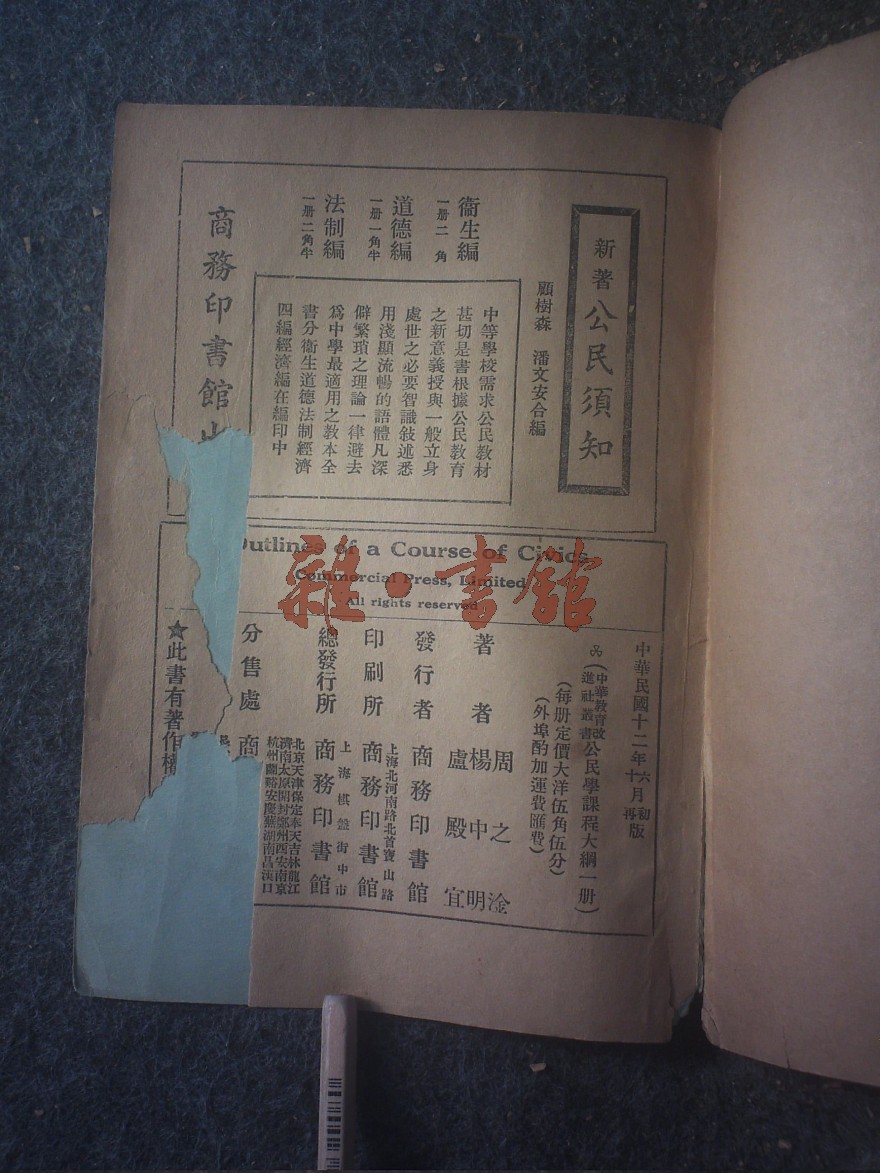 新著公民須知
顧樹森 潘文安合編
衞生編
一册二角
道德編
一册一角半
法制編
一册二角半
中等學校需求公民教材
甚切是書根據公民教育
之新意義授與一般立身
處世之必要智識敍述悉
用淺顯流暢的語體凡深
僻繁瑣之理論一律避去
爲中學最適用之教本全
書分衞生道德法制經濟
四編經濟編在編印中
商務印書館
Outlines of a Course of Civics
Commercial Press, Limited
All rights reserved
中華民國十二年六月初版
十月再版
(中華教育改進社叢書公民學課程大綱一册)
(每册定價大洋伍角伍分)
(外埠酌加運費匯費)
著者 周之淦
楊中明
盧殿宜
發行者 商務印書館
上海北河南路北首寶山路
印刷所 商務印書館
上海棋盤街中市
總發行所 商務印書館
北京天津保定奉天吉林龍江
濟南太原開封鄭州西安南京
杭州蘭谿安慶蕪湖南昌漢口
分售處 商
★此書有著作權
雜·書館